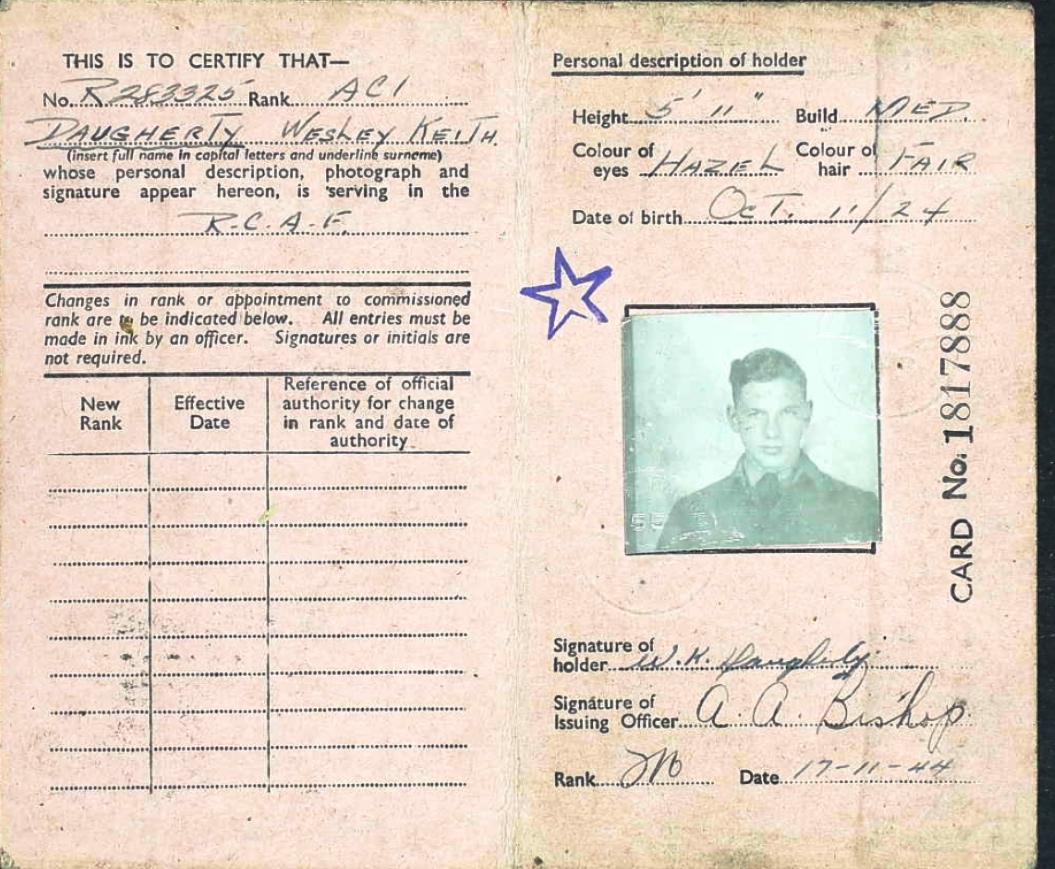 THIS IS TO CERTIFY THAT—
No. R283325 Rank AC1
DAUGHERTY WESLEY KEITH.
(insert full name in capital letters and underline surname)
whose personal description, photograph and
signature appear hereon, is serving in the
R.C.A.F.
Changes in rank or appointment to commissioned
rank are to be indicated below. All entries must be
made in ink by an officer. Signatures or initials are
not required.
New Rank
Effective Date
Reference of official authority for change in rank and date of authority
Personal description of holder
Height 5' 11" Build MED.
Colour of eyes HAZEL Colour of hair FAIR
Date of birth OCT. 11/24
CARD No. 1817888
Signature of holder W.K. Daugherty
Signature of Issuing Officer A. A. Bishop
Rank Date 17-11-44